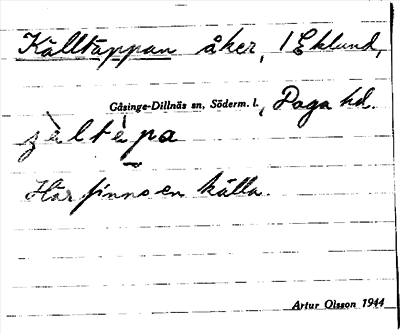 Källtäppan åker, / Eklund,
Gåsinge-Dillnäs sn, Söderm. l., Daga hd.
Här finns en källa.
Artur Olsson 1944